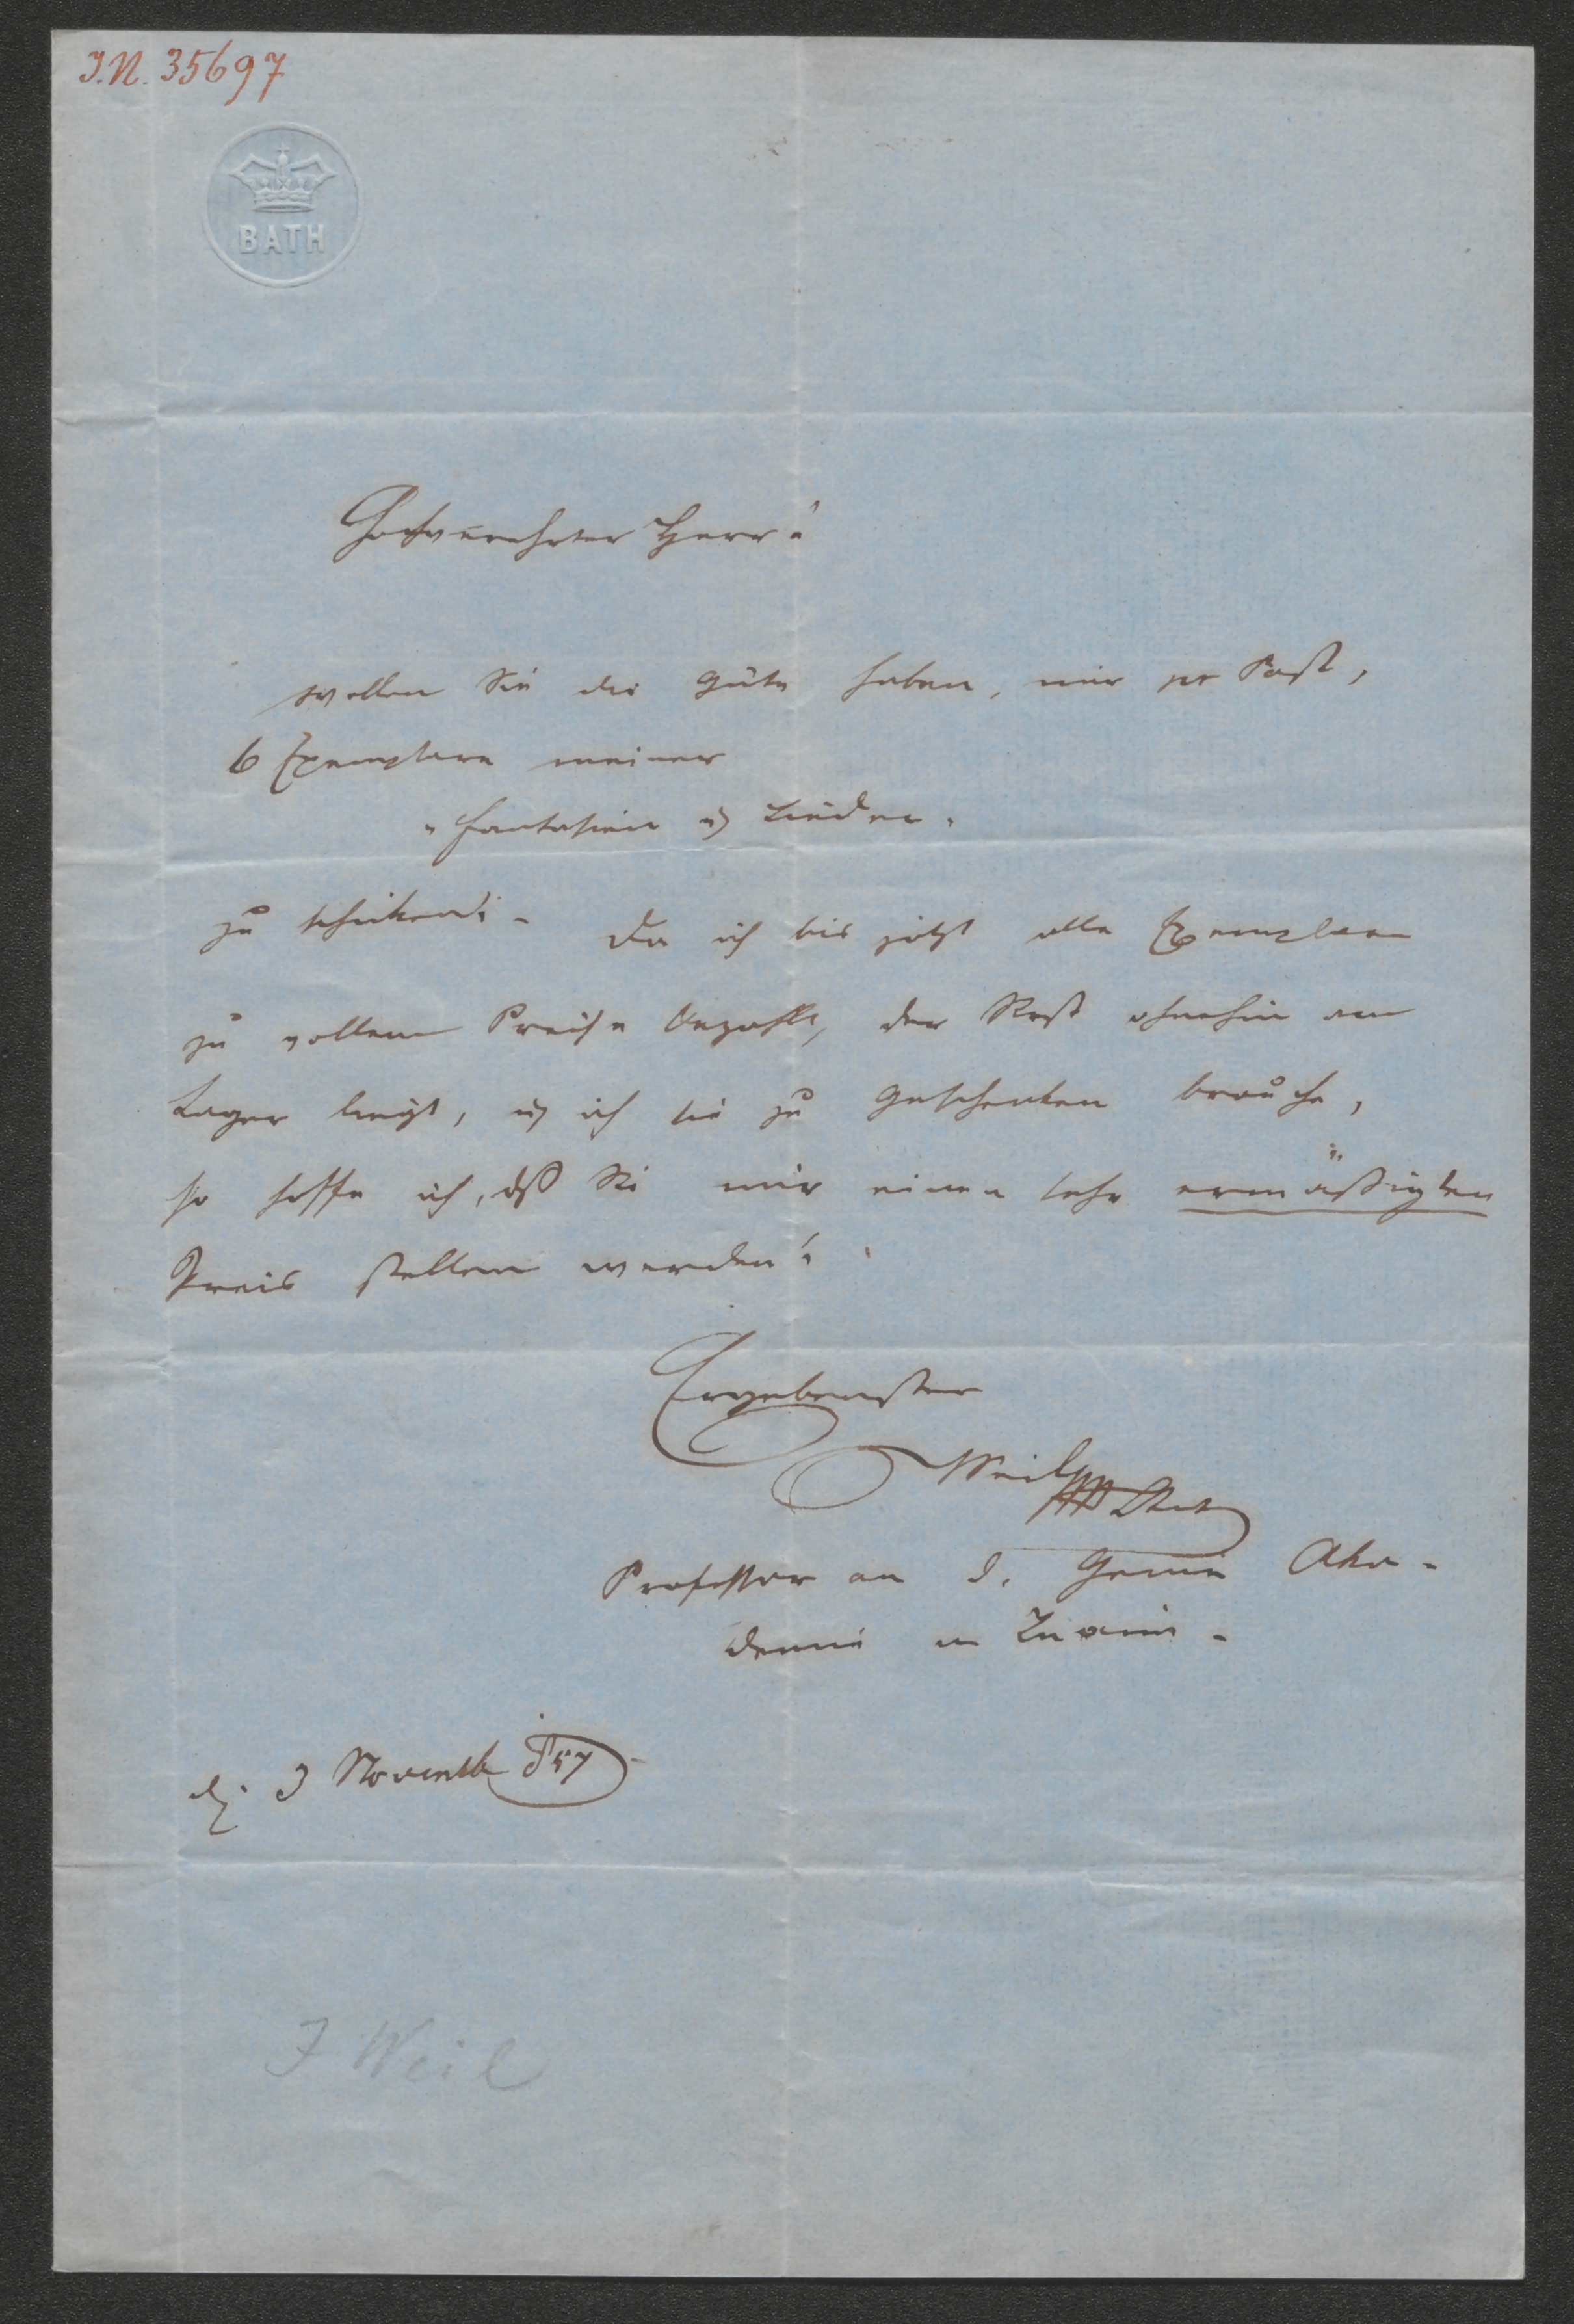 I.N. 35697
BATH
Hochverehrter Herr!
wollen Sie die Güte haben, mir pr Post,
6 Exemplare meiner
"Fantasien u Lieder"
zu schiken! - Da ich bis jetzt alle Exemplare
zu vollem Preise bezahlt, der Rest ohnehin am
Lager liegt, u ich sie zu Geschenken brauche,
so hoffe ich, dß Sie mir einen sehr ermäßigten
Preis stellen werden!
Ergebenster
Weil
Professor an d. Genie Aka-
demie in Znaim -
d. 3 Novemb 857 -
J Weil